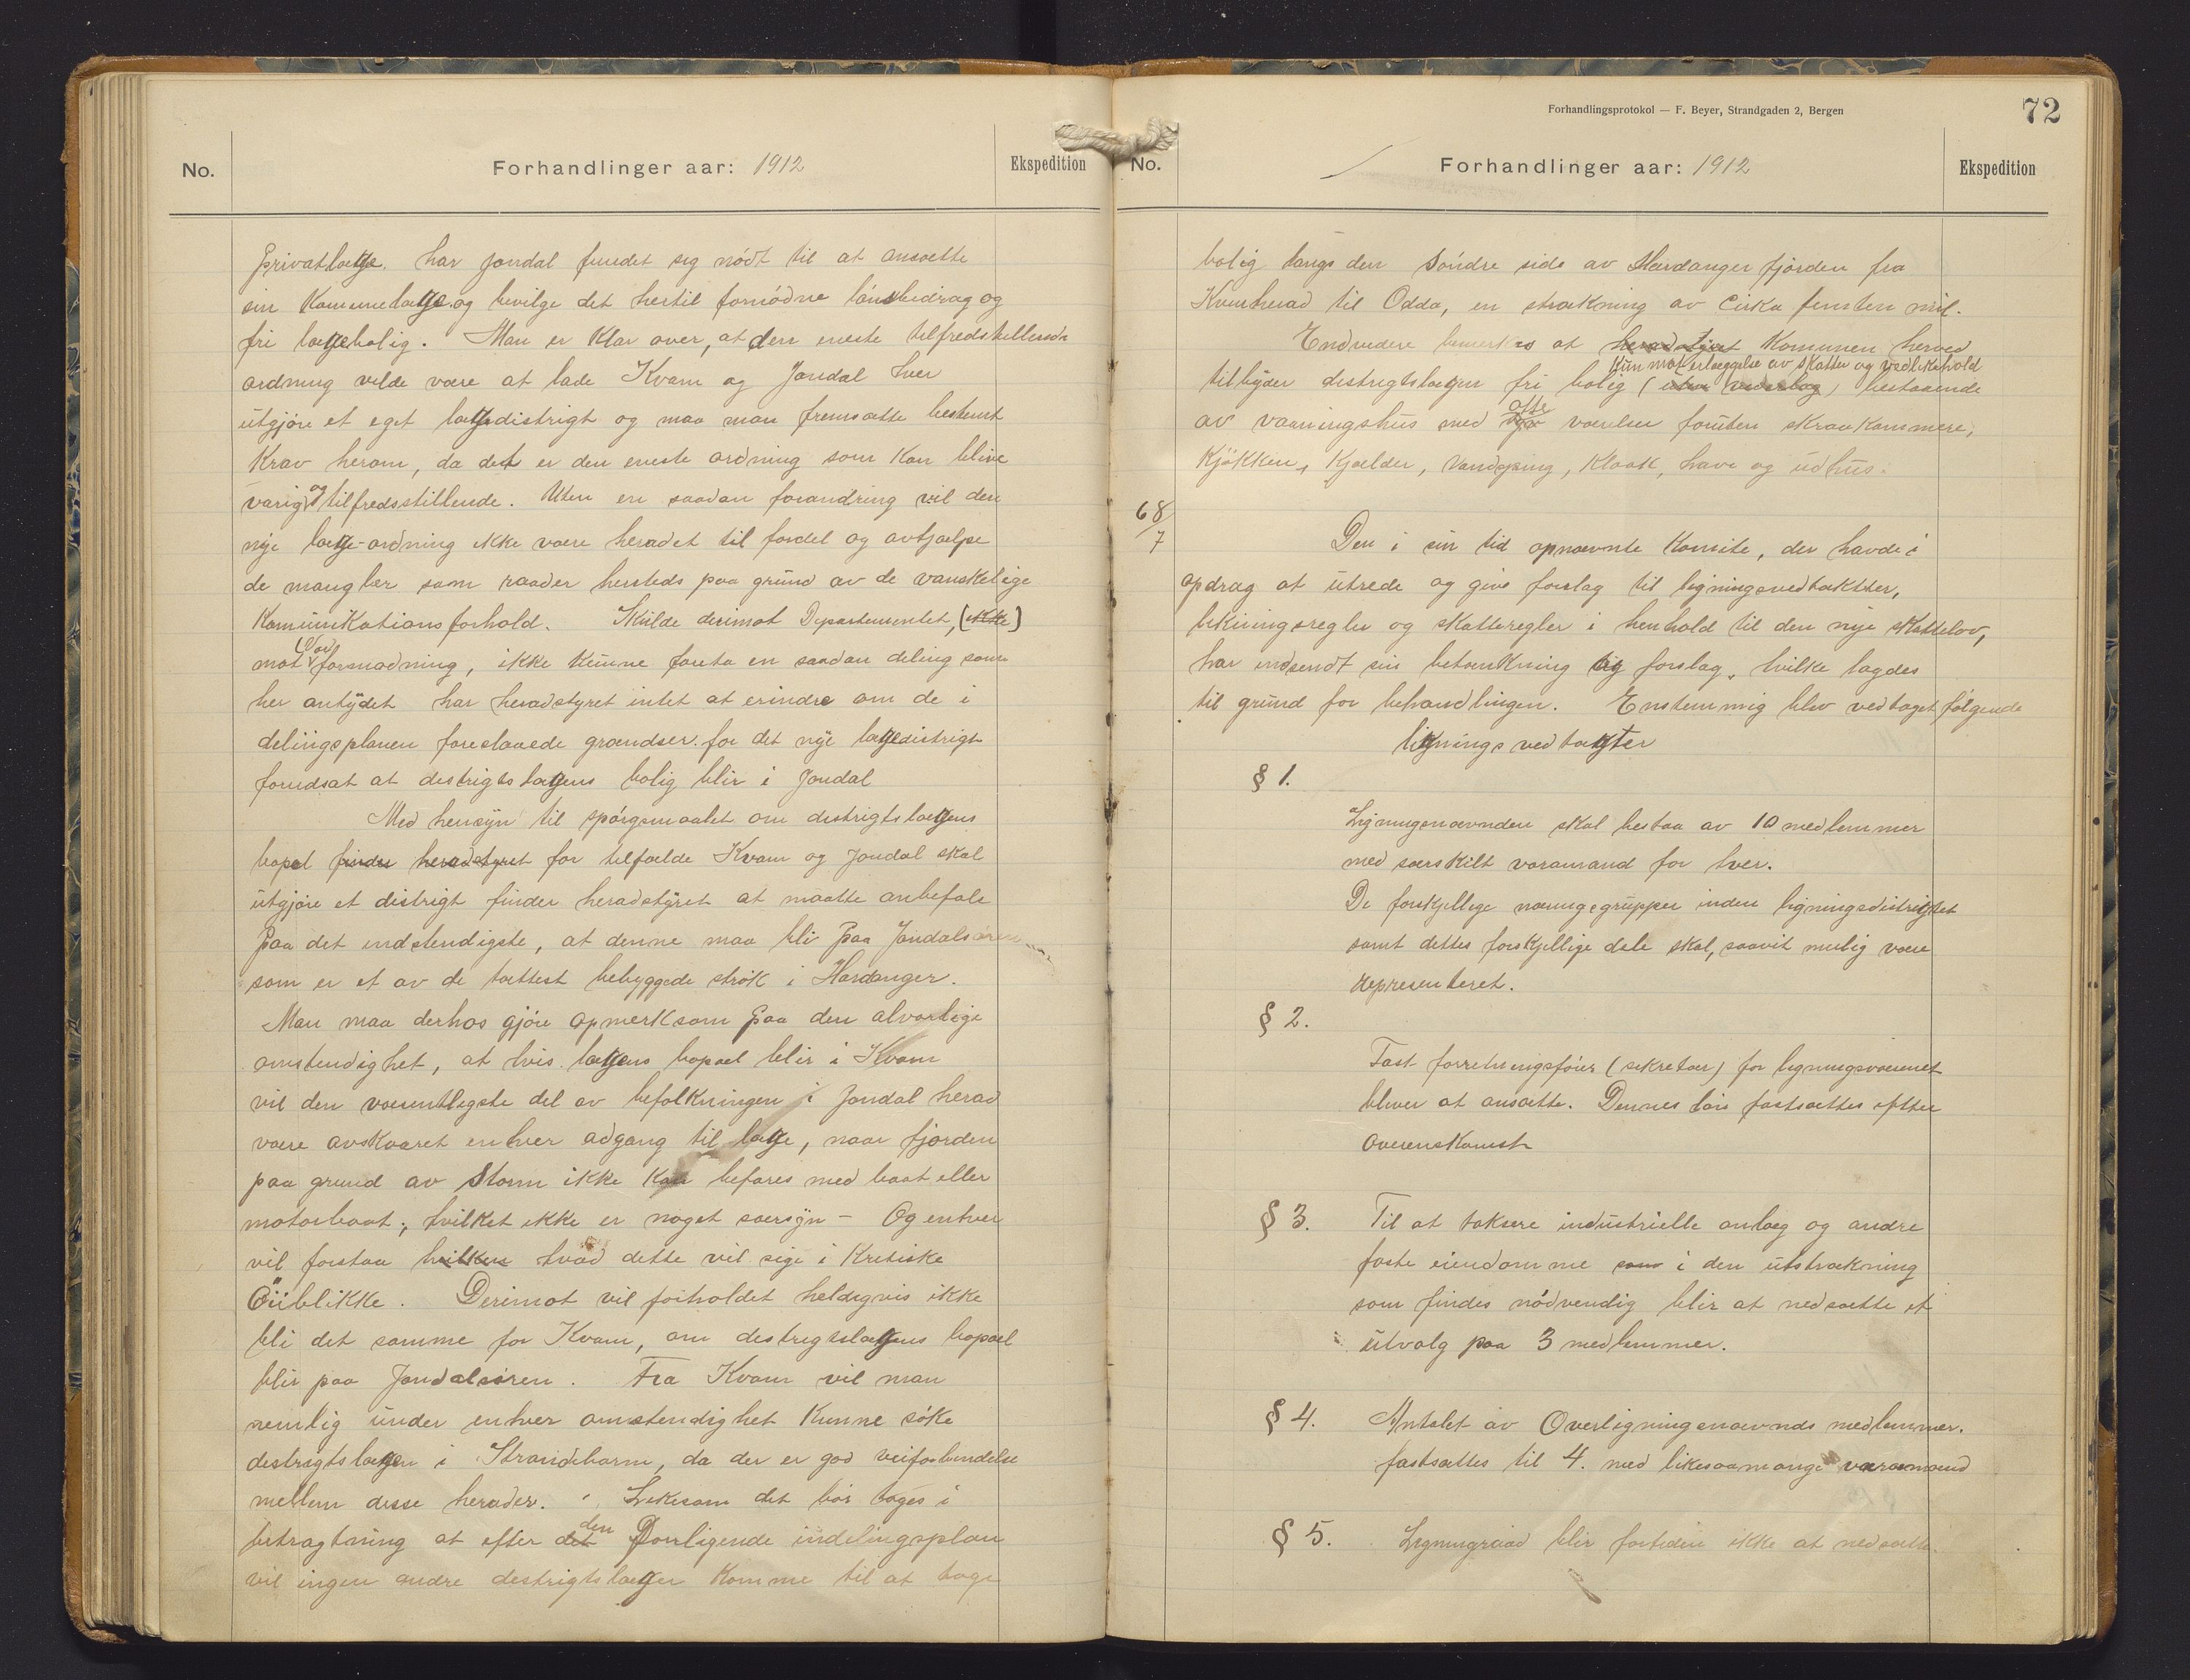 No.
Forhandlinger aar: 1912
Ekspedition
Privatlæge. har Jondal fundet seg nødt til at ansætte
sin Kommunelæge og bevilge det hertil fornødne lønsbidrag og
fri lægebolig. Man er klar over, at den eneste tilfredstillende
ordning vilde være at lade Kvam og Jondal hver
utgjøre et eget lægedistrigt og maa man fremsætte bestemt
Krav herom, da det er den eneste ordning som Kan blive
varig og tilfredsstillende. Uten en saadan forandring vil den
nye læge-ordning ikke være heradet til fordel og avhjælpe
de mangler som raader hersteds paa grund av de vanskelige
Kommunikationsforhold. Skulde derimot Departementet, (ikke)
mot (vor) formodning, ikke kunne foreta en saadan deling som
her antydet har heradstyret intet at erindre om de i
delingsplanen foreslaaede grændser for det nye lægedistrigt
forudsat at distrigtslægens bolig blir i Jondal
Med hensyn til spørgsmaalet om distrigtslægens
bopæl finder heradstyret for tilfælde Kvam og Jondal skal
utgjøre et distrigt finder heradstyret at maatte anbefale
paa det indstendigste, at denne maa bli paa Jondalsøren
som er et av de tættest bebyggede strøk i Hardanger.
Man maa derhos gjøre opmerksom paa den alvorlige
omstendighet, at hvis lægens bopæl blir i Kvam
vil den væsentligste del av befolkningen i Jondal herad
være avskaaret enhver adgang til læge, naar fjorden
paa grund av Storm ikke Kan befares med baat eller
motorbaat; hvilket ikke er noget særsyn – Og enhver
vil forstaa hvilken hvad dette vil sige i Kritiske
Öiiblikke. Derimot vil forholdet heldigvis ikke
bli det samme for Kvam, om distrigtslægens bopæl
blir paa Jondalsøren. Fra Kvam vil man
nemlig under enhver omstendighet Kunne søke
distrigtslægen i Strandebarm, da der er god veiforbindelse
mellem disse herader. Likesom det bør tages i
betragtning at efter det den Foreliggende inddelingsplan
vil ingen andre distrigtslæger Komme til at tage
Forhandlingsprotokol — F. Beyer, Strandgaden 2, Bergen
72
No.
Forhandlinger aar: 1912
Ekspedition
bolig langs den Søndre side av Hardanger fjorden fra
Kvinherad til Odda, en strækning av Cirka femten mil.
Endvidere bemerkes at heradstyret Komunen herved
Kun mot erlæggelse av skatter og vedlikehold
tilbyder distrigtslægen fri bolig (uten vederlag) bestaaende
av vaaningshus med otte værelser foruten skraakammere,
Kjøkken, Kjælder, Vandgang, Kloak, have og udhus.
68/7
Den i sin tid opnævnte Komite, der havde i
opdrag at utrede og give forslag til ligningsvedtækter,
likningsregler og skatteregler i henhold til den nye skattelov,
har indsendt sin betænkning og forslag, hvilke lagdes
til grund for behandlingen. Enstemmig blev vedtaget følgende
ligningsvedtægter
§ 1.
Ligningsnævnden skal bestaa av 10 medlemmer
med særskilt varamand for hver.
De forskjellige næringsgrupper inden ligningsdistriktet
samt dettes forskjellige dele skal, saavit mulig være
representeret.
§ 2.
Fast forretningsfører (sekretær) for ligningsvæsenet
bliver at ansætte. Dennes løn fastsættes efter
Overenskomst
§ 3. Til at taksere industrielle anlæg og andre
faste eiendomme som i den utstrækning
som findes nødvendig blir at nedsætte et
utvalg paa 3 medlemmer.
§ 4. Antalet av Overligningsnævnds medlemmer.
fastsættes til 4. med likesaamange varamænd
§ 5. Ligningraad blir fortiden ikke at nedsætte.